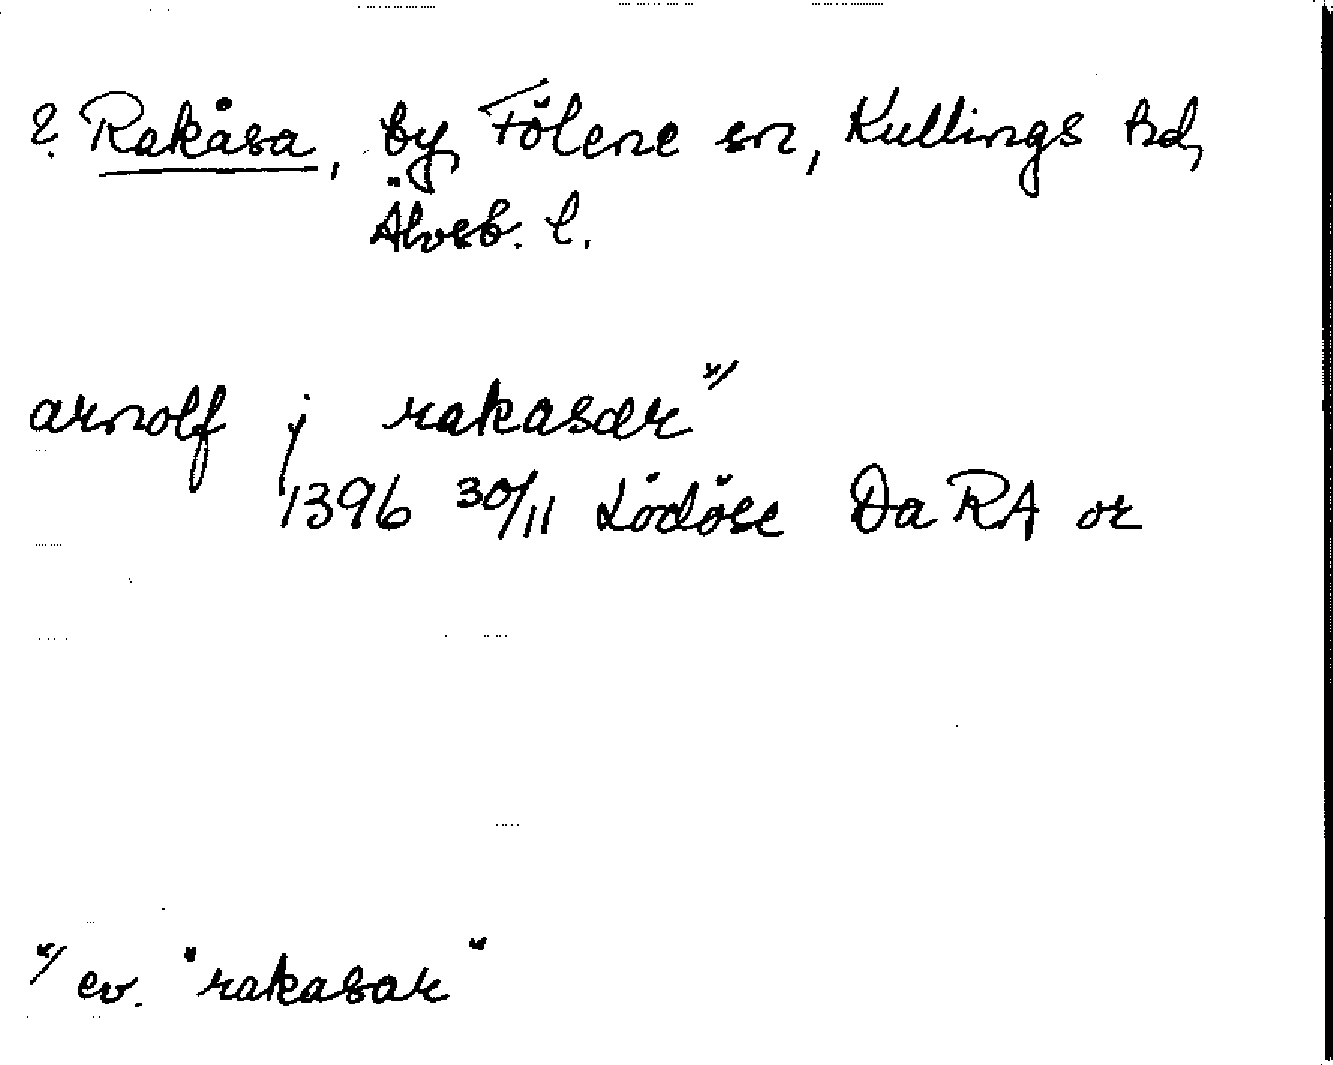 ? Rakåsa, by, Fölene sn, Kullings hd,
Älvsb. l.
arnolf j rakasær x/
1396 30/11 Lödöse Da RA or
x/ ev. "rakasar"